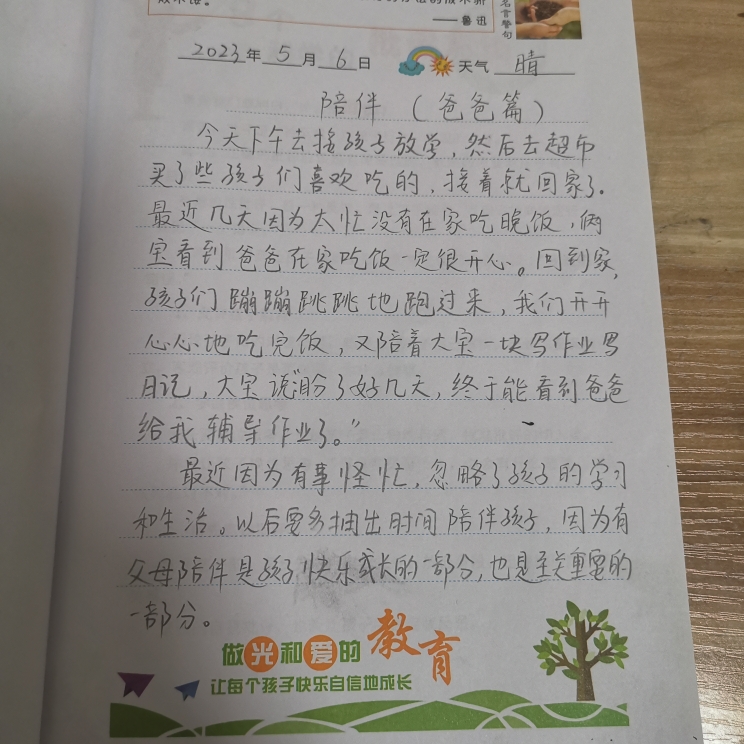 ——鲁迅
名言警句
2023年5月6日 天气 晴
陪伴（爸爸篇）
今天下午去接孩子放学，然后去超市
买了些孩子们喜欢吃的，接着就回家了.
最近几天因为太忙没有在家吃晚饭，俩
宝看到爸爸在家吃饭一定很开心。回到家，
孩子们蹦蹦跳跳地跑过来，我们开开
心心地吃完饭，又陪着大宝一块写作业写
日记，大宝说“盼了好几天，终于能看到爸爸
给我辅导作业了。”
最近因为有事怪忙，忽略了孩子的学习
和生活。以后要多抽出时间陪伴孩子，因为有
父母陪伴是孩子快乐成长的一部分，也是至关重要的
一部分。
做光和爱的教育
让每个孩子快乐自信地成长